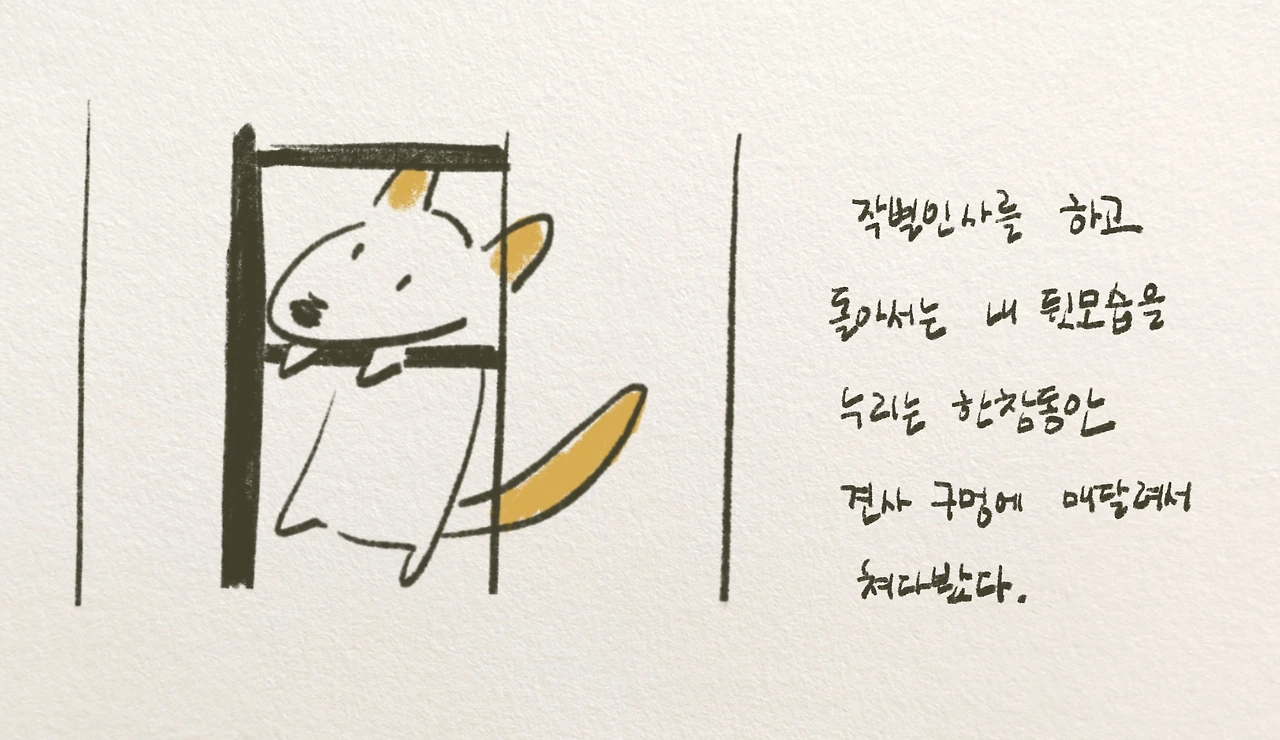 작별인사를 하고
돌아서는 내 뒷모습을
누리는 한참동안
견사 구멍에 매달려서
쳐다봤다.